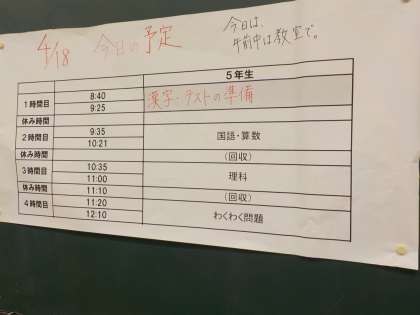 4/18 今日の予定
今日は、
午前中は教室で。
5年生
1時間目 8:40 漢字・テストの準備
9:25
休み時間
2時間目 9:35 国語・算数
10:21
休み時間 (回収)
3時間目 10:35 理科
11:00
休み時間 11:10 (回収)
4時間目 11:20 わくわく問題
12:10